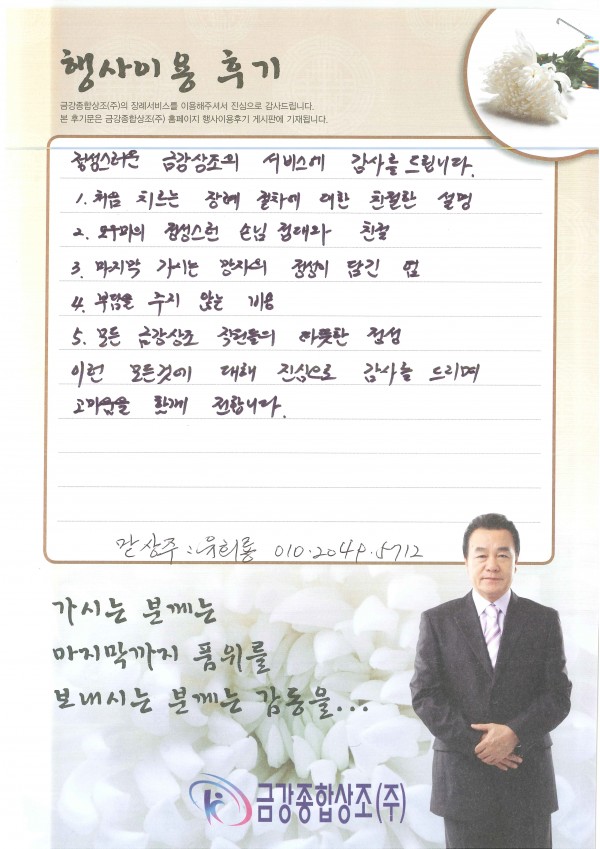 행사이용 후기
금강종합상조(주)의 장례서비스를 이용해주셔서 진심으로 감사드립니다.
본 후기문은 금강종합상조(주) 홈페이지 행사이용후기 게시판에 기재됩니다.
정성스러운 금강상조의 서비스에 감사를 드립니다.
1. 처음 치르는 장례 절차에 대한 친절한 설명
2. 도우미의 정성스런 손님 접대와 친절
3. 마지막 가시는 망자의 정성이 담긴 염
4. 부담을 주지 않는 비용
5. 모든 금강상조 직원들의 따뜻한 정성
이런 모든것에 대해 진심으로 감사를 드리며
고마움을 함께 전합니다.
상주 : 유희룡 010.2049.5712
가시는 분께는
마지막까지 품위를
보내시는 분께는 감동을...
금강종합상조(주)